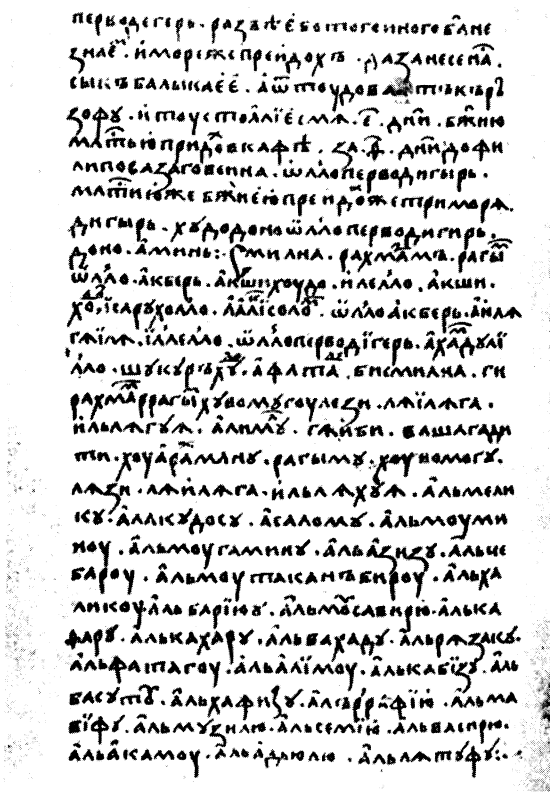 перводегерь . разъвѣ е҆ бо того иного бг҃а не
знае҆м̾ . и҆ море же преидохъ . да занесе на҆с̾ .
сыкъ балыкае҆ е҆ . а҆ ѿтоудова тъкъръ
зофу . и҆ тоу стоа҆лі҆ е҆смѧ . е҃ . дн҃и . бж҃ию
млⷭ҇тью придоⷯ в кафѣ . за . ѳ҃ . дн҃и до фи
липова заговеина . ѡ҆лло перводигырь .
млⷭ҇тию же бж҃иею преидоⷯ же три морѧ .
дигырь . худо доно ѡ҆лло перводигирь .
доно . а҆минь :· Смилна . рахмаⷨмъ . рагыⷨ
ѡ҆лло . а҆кберь . а҆кши хоудо . илелло . а҆кши .
хоⷣ . і҆са рухолло . а҆а҆лі҆солоⷨ . ѡ҆лло а҆кберь . а҆илѧ
гѧі҆лѧ . і҆ллелло . ѡ҆лло перводі҆герь . а҆хаⷨдулі҆
лло . шукуръ хуⷣ . а҆фатаⷣ . бисмилна . ги
рахмаⷨ ррагыⷨ хувомугоулези . лѧі҆лѧга .
и҆льлѧгуѧ . а҆лимуⷧ . гѧиби . вашагади
ти . хоуа҆раⷯману . рагыму . хоувомогу .
лѧзи . лѧи҆лѧга . и҆льлѧхуѧ . а҆льмели
ку . а҆лакудосу . а҆салому . а҆льмоуми
ноу . а҆льмоугамину . а҆льа҆зизу . альче
бароу . а҆льмоутаканъбироу . а҆льха
ликоу альбарі҆юу . а҆льмоⷹсавирю . а҆лька
фару . алькахару . а҆львахаду . а҆льрѧзаку .
а҆льфатагоу . а҆льа҆лі҆моу . а҆лькабі҆зу . а҆ль
басутоу . а҆льхафизу . а҆лъррафі҆ю . а҆льма
ві҆фу . а҆льмузилю . а҆льсемі҆ю . альвасирю .
а҆льа҆камоу . а҆льа҆дьюлю . а҆льлѧтуфу :·